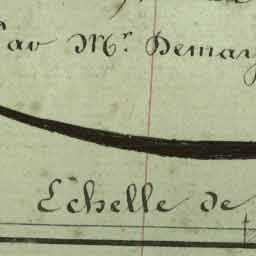 Par Mr. Demay
Echelle de